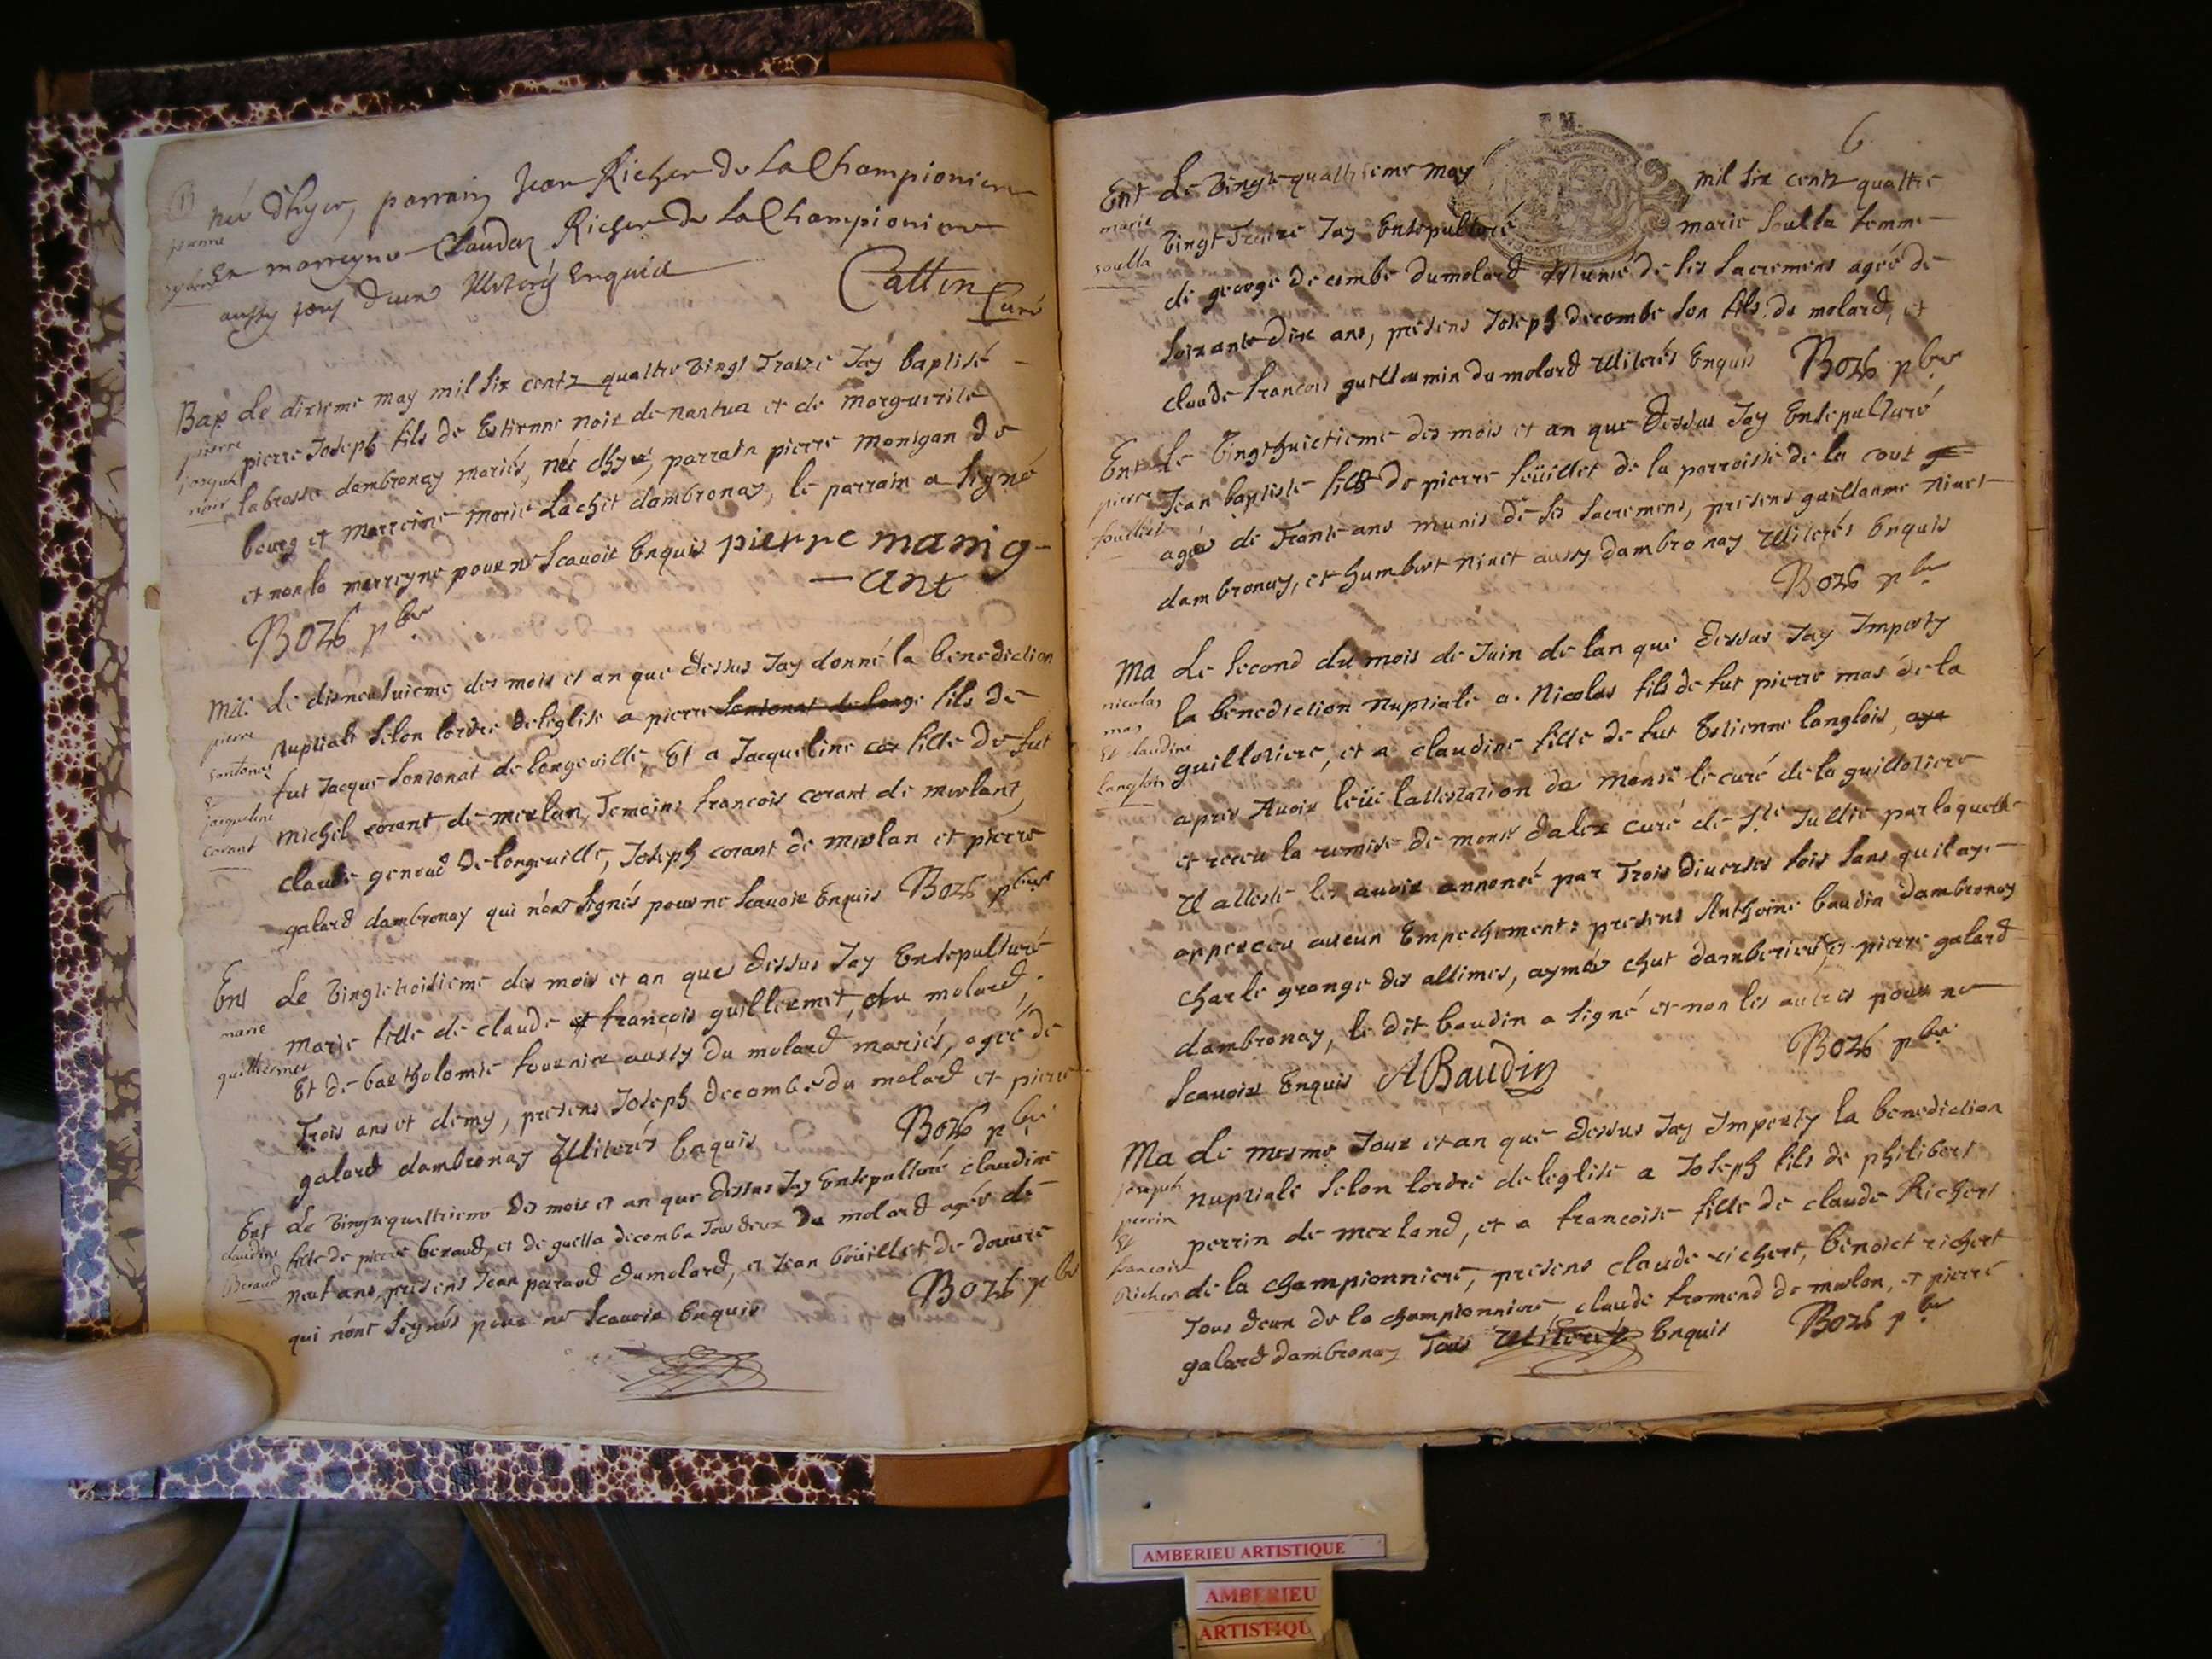 née dhyer, parrain Jean Richer de la Championiere
jeanne
Et marreyne Claudaz Richer de la Championiere
aussy tous deux Illiterés Enquis
Cattin
Curé
Bap Le dixieme may mil six centz quattre vingt Traize Jay baptisé
pierre joseph noir
pierre Joseph fils de Estienne noir de nantua et de marguerite
labrosse dambronay mariés, né dhyer, parrain pierre manigan de
bourg et marreine marie Lachit dambronay, le parrain a signé
et non la marreyne pour ne scavoir Enquis pierre manig-
-ant
Bozb pbre
Le disneufvieme des mois et an que dessus Jay donné la benediction
pierre sontonas & jacqueline corant
nuptiale selon lordre de leglise a pierre sontonat de longe fils de
fut Jacque sontonat de longeville, Et a Jacqueline cor fille de fut
michel corant de merlan, Temoins francois corant de merlant,
claude genoud de longeville, Joseph corant de merlan et pierre
galard dambronay qui nont signés pour ne scavoir Enquis Bozb pbre
Ent Le vingtroisieme des mois et an que dessus Jay Ensepulturé
marie guillermet
marie fille de claude et francois guillermet du molard,
Et de bartholomie fournier aussy du molard mariés, agée de
Trois ans et demy, presens Joseph decombe du molard et pierre
galard dambronay Illiterés Enquis Bozb pbre
Ent Le vingtquattrieme des mois et an que dessus Jay Ensepulturé claudine
claudine Beraud
fille de pierre beraud et de guella decombe Tous deux du molard agée de
neuf ans, presens Jean paraud du molard, et Jean boüillet de douvre
qui nont signés pour ne scavoir Enquis Bozb pbre
6
Ent Le vingtquattrieme may mil six centz quattre
marie soulla
vingt Traize Jay Ensepulturé marie soulla femme
de george decombe du molard Munie de ses sacremens agée de
soixante dix ans, presens Joseph decombe son fils du molard, et
claude francois guillermin du molard Illiterés Enquis Bozb pbre
Ent Le vingthuictieme des mois et an que dessus Jay Ensepulturé
pierre foüillet
Jean baptiste fils de pierre foüillet de la parroisse de la cout
agée de Trante ans munis de ses sacremens, presens guillaume nivet
dambronay, et humbert nivet aussy dambronay Illiterés Enquis
Bozb pbre
Ma Le second du mois de Juin de lan que dessus Jay Imparty
nicolas mas Et claudine langlois
la benediction nuptiale a Nicolas fils de fut pierre mas de la
guillotiere, et a claudine fille de fut Estienne langlois, aya
apres Avoir leüe lattestation de monsr le curé de la guillotiere
et receu la remise de monsr dalex curé de Ste Jullie par laquelle
Il atteste les avoir annoncé par Trois diverses fois sans quil aye
apperceu aucun Empechement: presens Anthoine baudin dambronay
charle grange des allimes, aymée chut damberieu, et pierre galard
dambronay, le dit baudin a signé et non les autres pour ne
scavoir Enquis ABaudin Bozb pbre
Ma Le mesme Jour et an que dessus Jay Imparty la benediction
joseph perrin Et francoise Richer
nuptiale selon lordre de leglise a Joseph fils de philibert
perrin de merland, et a francoise fille de claude Richert
de la championniere, presens claude richert, benoict richert
Tous deux de la championniere, claude fromend de merlan, et pierre
galard dambronay Tous Illiterés Enquis Bozb pbre
AMBERIEU ARTISTIQUE
AMBERIEU
ARTISTIQU